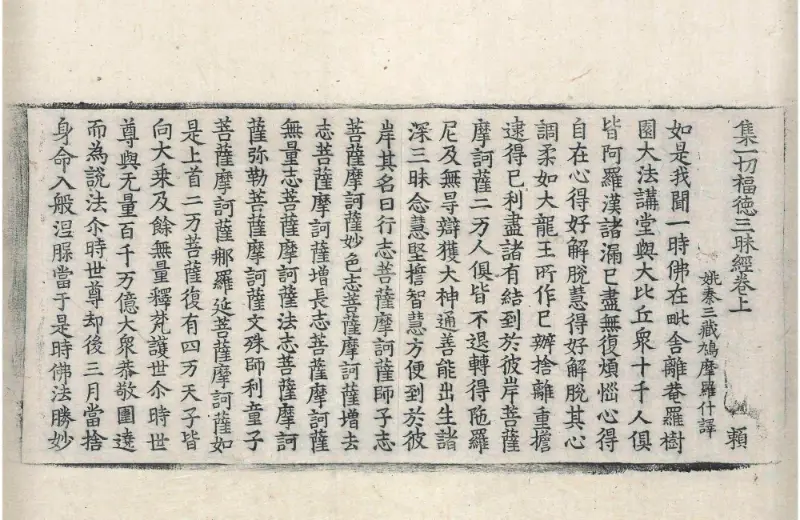 集一切福德三昧經卷上
頼
姚秦三藏鳩摩羅什譯
如是我聞一時佛在毗舍離菴羅樹
園大法講堂與大比丘衆十千人俱
皆阿羅漢諸漏已盡無復煩惱心得
自在心得好解脫慧得好解脫其心
調柔如大龍王所作已辦捨離重擔
逮得已利盡諸有結到於彼岸菩薩
摩訶薩二万人俱皆不退轉得陁羅
尼及無㝵辯獲大神通善能出生諸
深三昧念慧堅擔智慧方便到於彼
岸其名曰行志菩薩摩訶薩師子志
菩薩摩訶薩妙色志菩薩摩訶薩增去
志菩薩摩訶薩增長志菩薩摩訶薩
無量志菩薩摩訶薩法志菩薩摩訶
薩弥勒菩薩摩訶薩文殊師利童子
菩薩摩訶薩那羅延菩薩摩訶薩如
是上首二万菩薩復有四万天子皆
向大乘及餘無量釋梵護世尒時世
尊與无量百千万億大衆恭敬圍遶
而為說法尒時世尊却後三月當捨
身命入般涅脲當于是時佛法勝妙